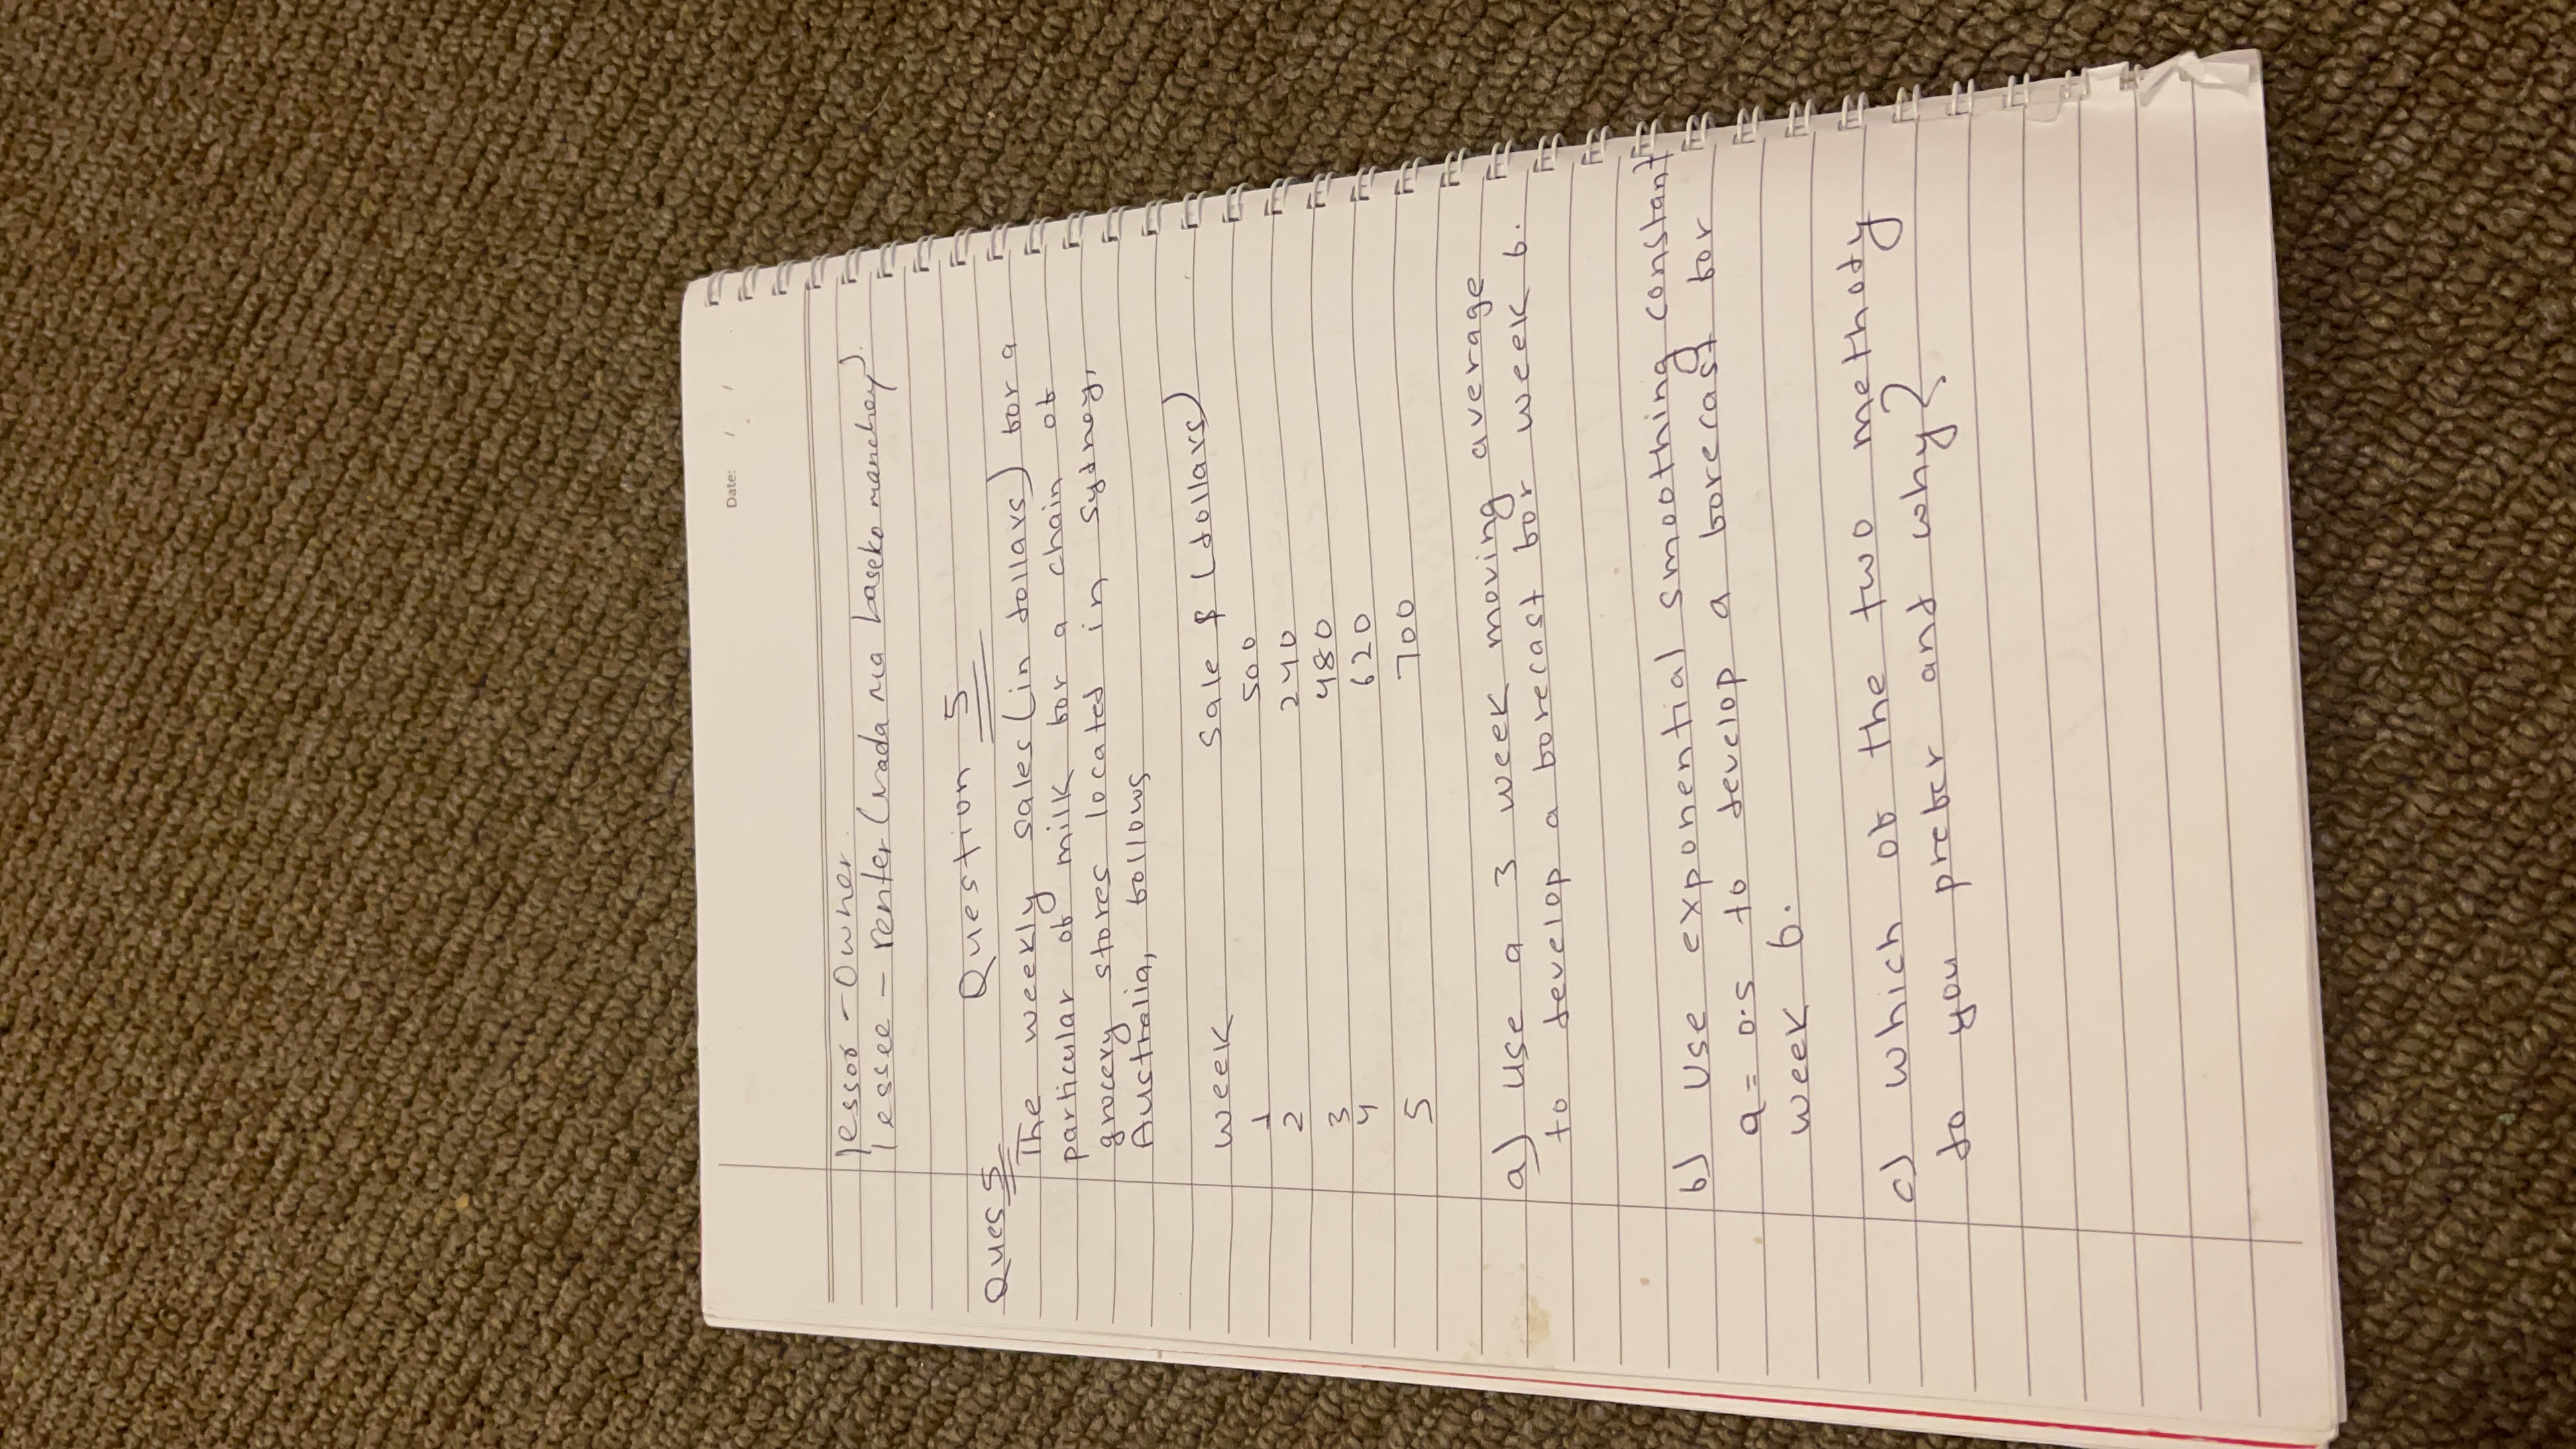 Date: / /
lessor - Owner
lessee - renter (vada ma baseko manchey).
Question 5
Ques 5
The weekly sales (in dollars) for a
particular of milk for a chain of
grocery stores located in sydney,
Australia, follows
week Sale $ (dollars)
1 500
2 240
3 480
4 620
5 700
a) use a 3 week moving average
to develop a forecast for week 6.
b) use exponential smoothing constant
a = 0.5 to develop a forecast for
week 6.
c) which of the two methody
do you prefer and why?